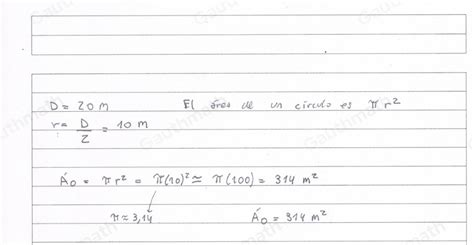 D = 20 m El área de un círculo es π r²
r = D/2 = 10 m
Á₀ = π r² = π(10)² ≃ π(100) = 314 m²
π ≈ 3,14 Á₀ = 314 m²
Gauthmath